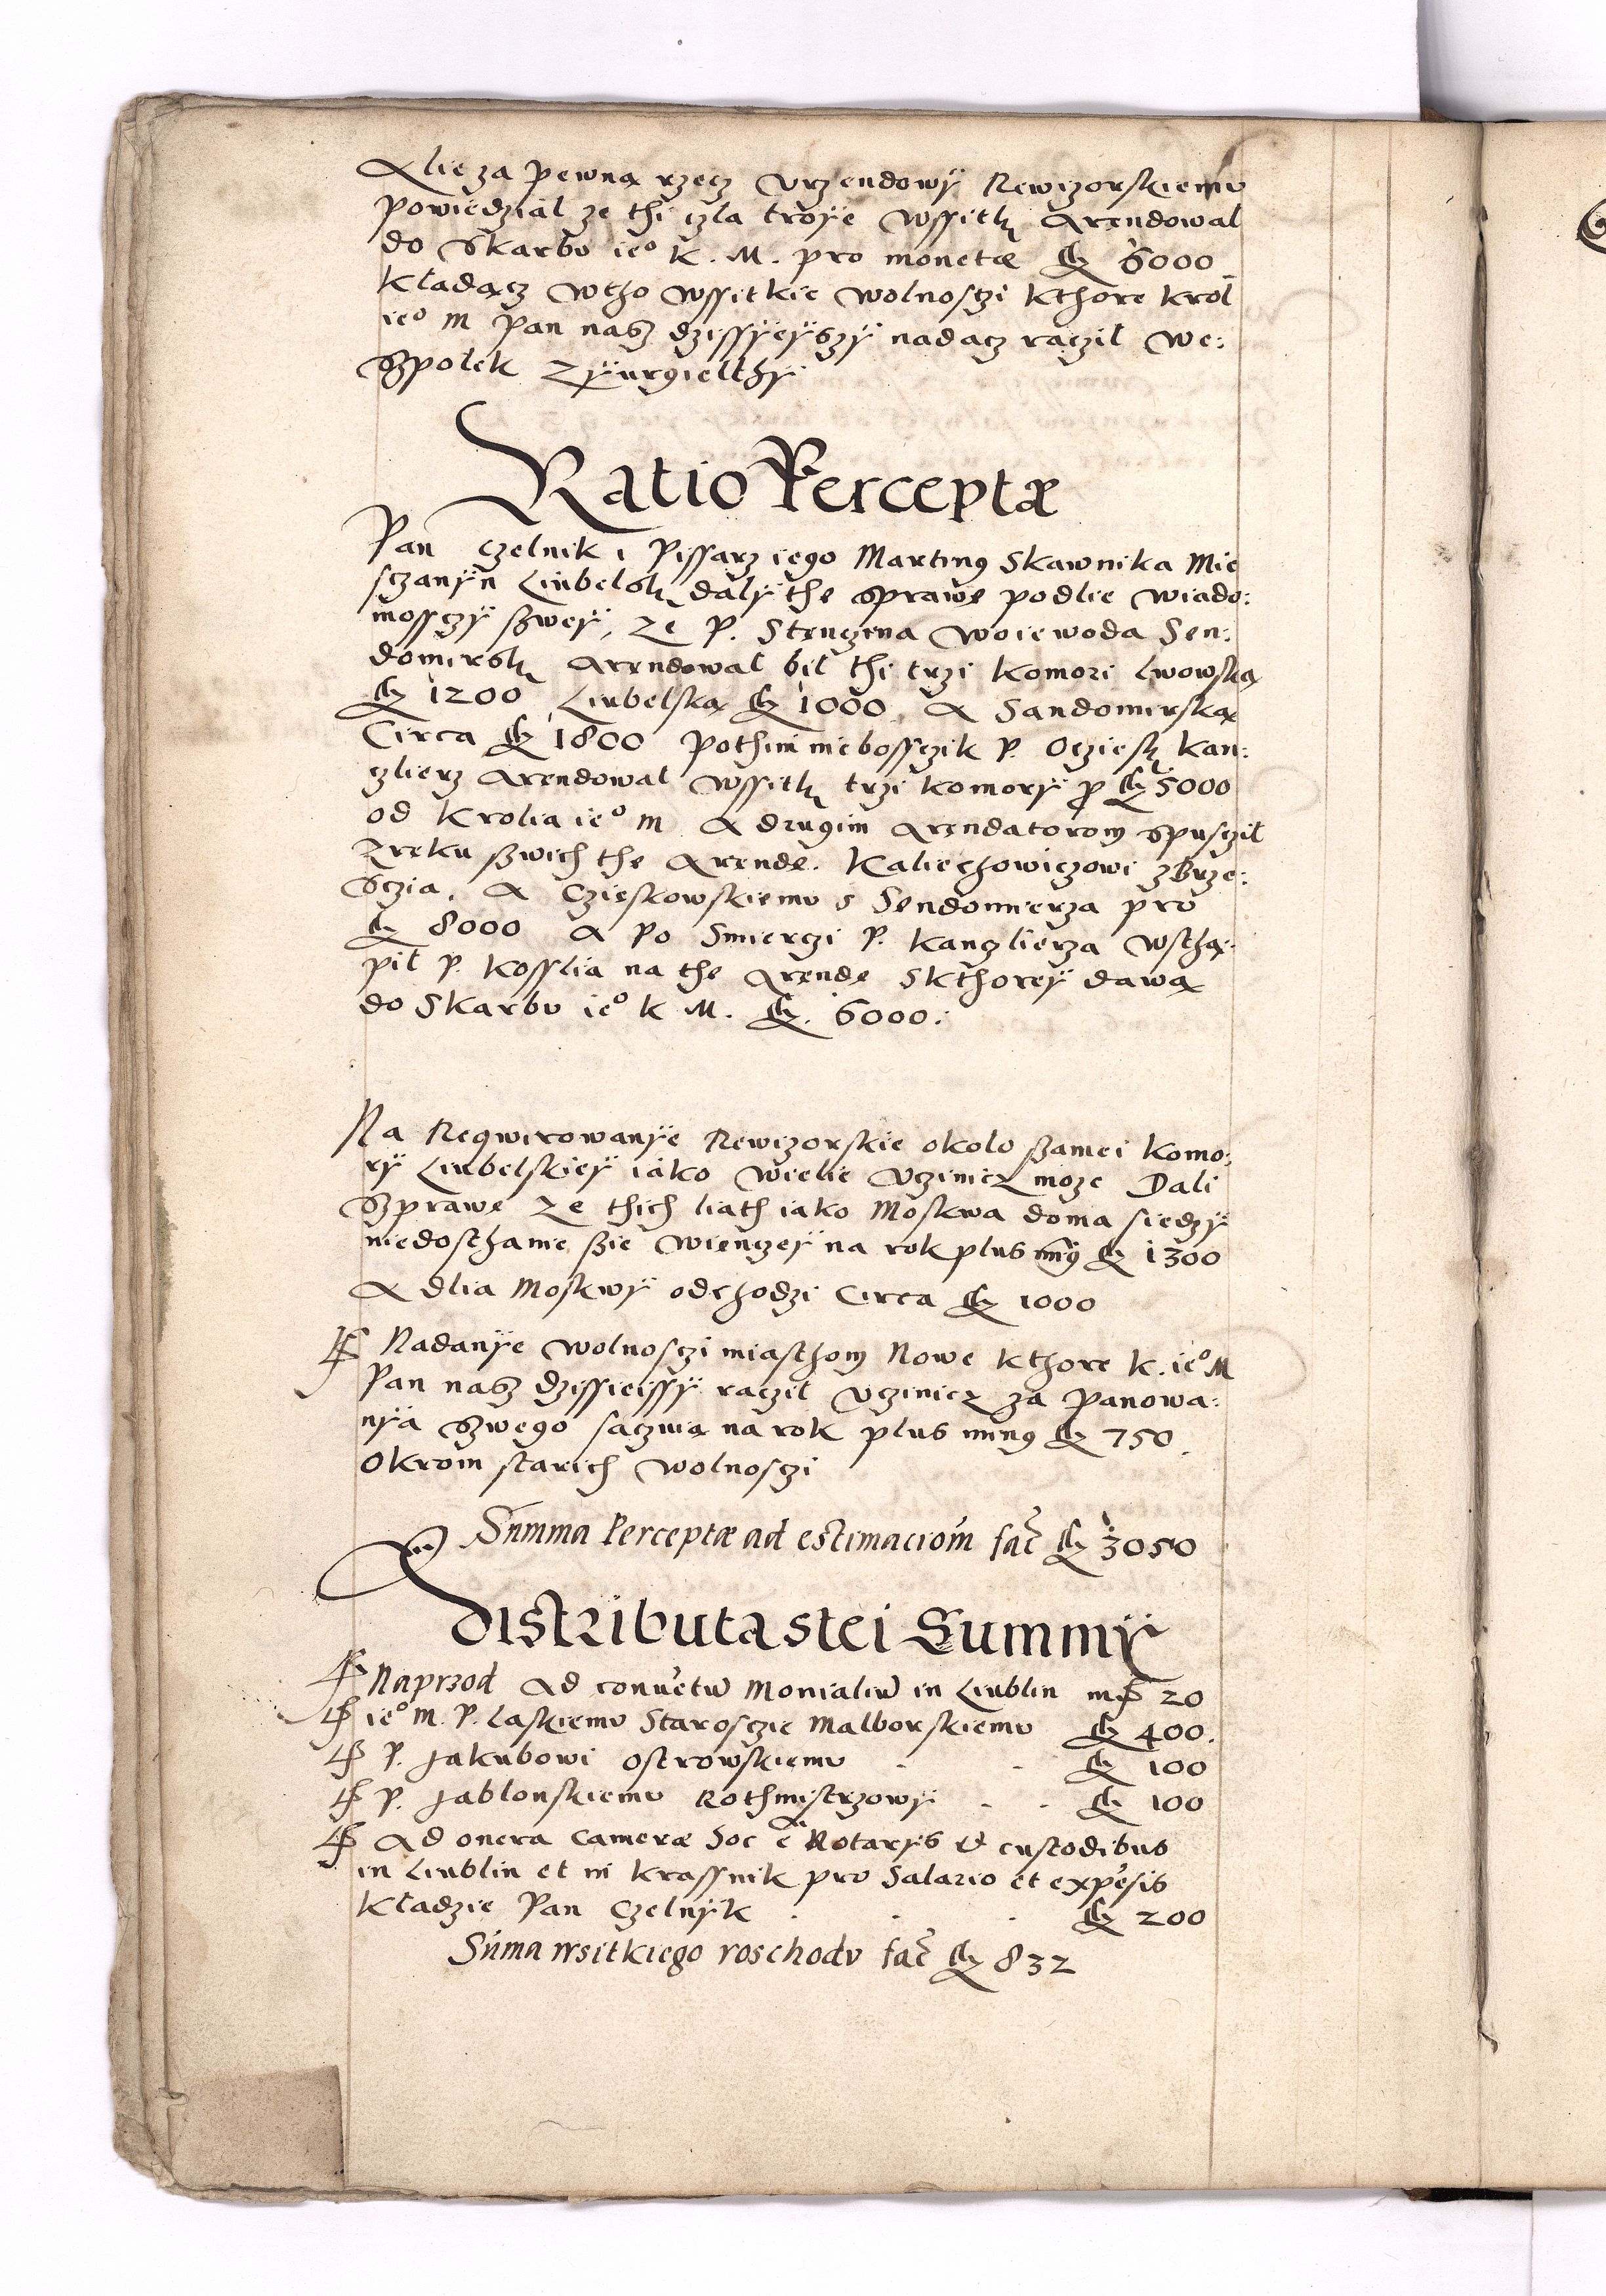 Alie za pewną rzecz Vrzendowÿ Rewizorskiemu
powiedzial ze thi czla troÿe Wssitk Arendowal
do Skarbu ie° K. M. pro moneta fl 6000
Kladącz wtho wssitkie wolnosczi kthore krol
ie° M pan nasz dzissÿeÿszÿ nadacz raczil we:
szpolek Zÿurgielthÿ
Ratio Perceptæ
Pan Czelnik i Pissarz iego Martin9 Skawnika Mie
sczanÿn Liubelsk dalÿ the sprawe podlie wiado:
mossczÿ szweÿ, ze P. Stenczina Woiewoda Sen:
domirsk Arendowal bil thi trzi Komori Lwowską
fl 1200 Liubelską fl 1000. A Sandomirską
Circa fl 1800 pothim niebossczik P. Ocziesk kan:
czlierz Arendowal wssitk trzi komorÿ p fl 5000
od Krolia ie° m A drugim Arendatorom spusczil
Zręku szwich the Arende. Kaliechowiczowi zBrze:
sczia. A Czieskowskiemu s Sendomierza pro
fl 8000 A po Smierczi P. kanczlierza wsthą:
pil P. Kosslia na the Arende Skthoreÿ dawa
do Skarbu ie° k M. fl. 6000.
Na Reqwirowanÿe Rewizorskie okolo szamei Komo:
rÿ Liubelskieÿ iako wielie Vczinicz moze Dali
Szprawe ze thich liath iako Moskwa doma siedzÿ
niedosthanie szie wienczeÿ na rok plus min9 fl 1300
A dlia Moskwÿ odchodzi Circa fl 1000
Nadanÿe wolnosczi miasthom Nowe kthore K. ie° M
Pan nasz dzissieissÿ raczil vczinicz za panowa:
nÿa szwego saczuią na rok plus min9 fl 750.
Okrom starich wolnosczi
Summa Perceptæ ad estimaciom fac fl 3050
Distributa stei Summÿ
Naprzod Ad conuetu Monialiu in Liublin mr 20
ie° M. P. Laskiemu Starosczie Malborskiemu fl 400.
P. Jakubowi Ostrowskiemu . . fl 100
P. Jablonskiemu Rothmistrzowÿ . . fl 100
Ad onera Cameræ hoc e Notarÿs et custodibus
in Liublin et in Krassnik pro Salario et expesis
Kladzie Pan Czelnÿk . . . fl 200
Suma wsitkiego roschodu fac fl 832